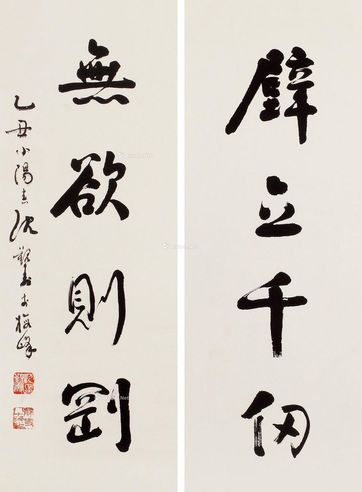 壁立千仞
無欲則剛
乙丑小陽春沈觀壽書於梅峰